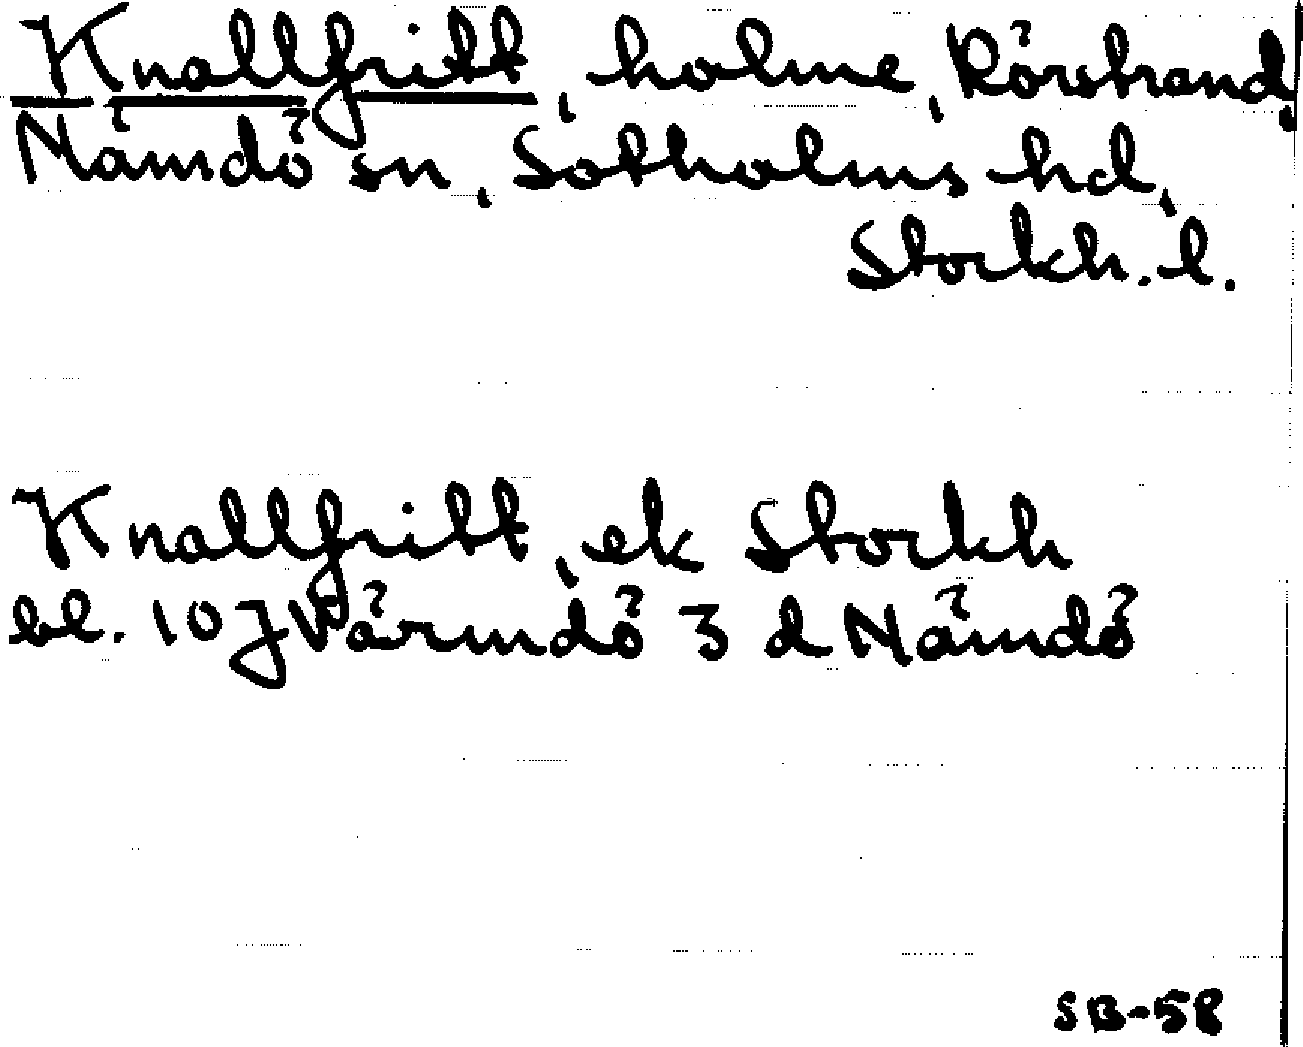 Knallfritt, holme, Rörstrand,
Nämdö sn, Sotholms hd,
Stockh. l.
Knallfritt, ek Stockh
bl. 10J Värmdö 3 d Nämdö
SB-58